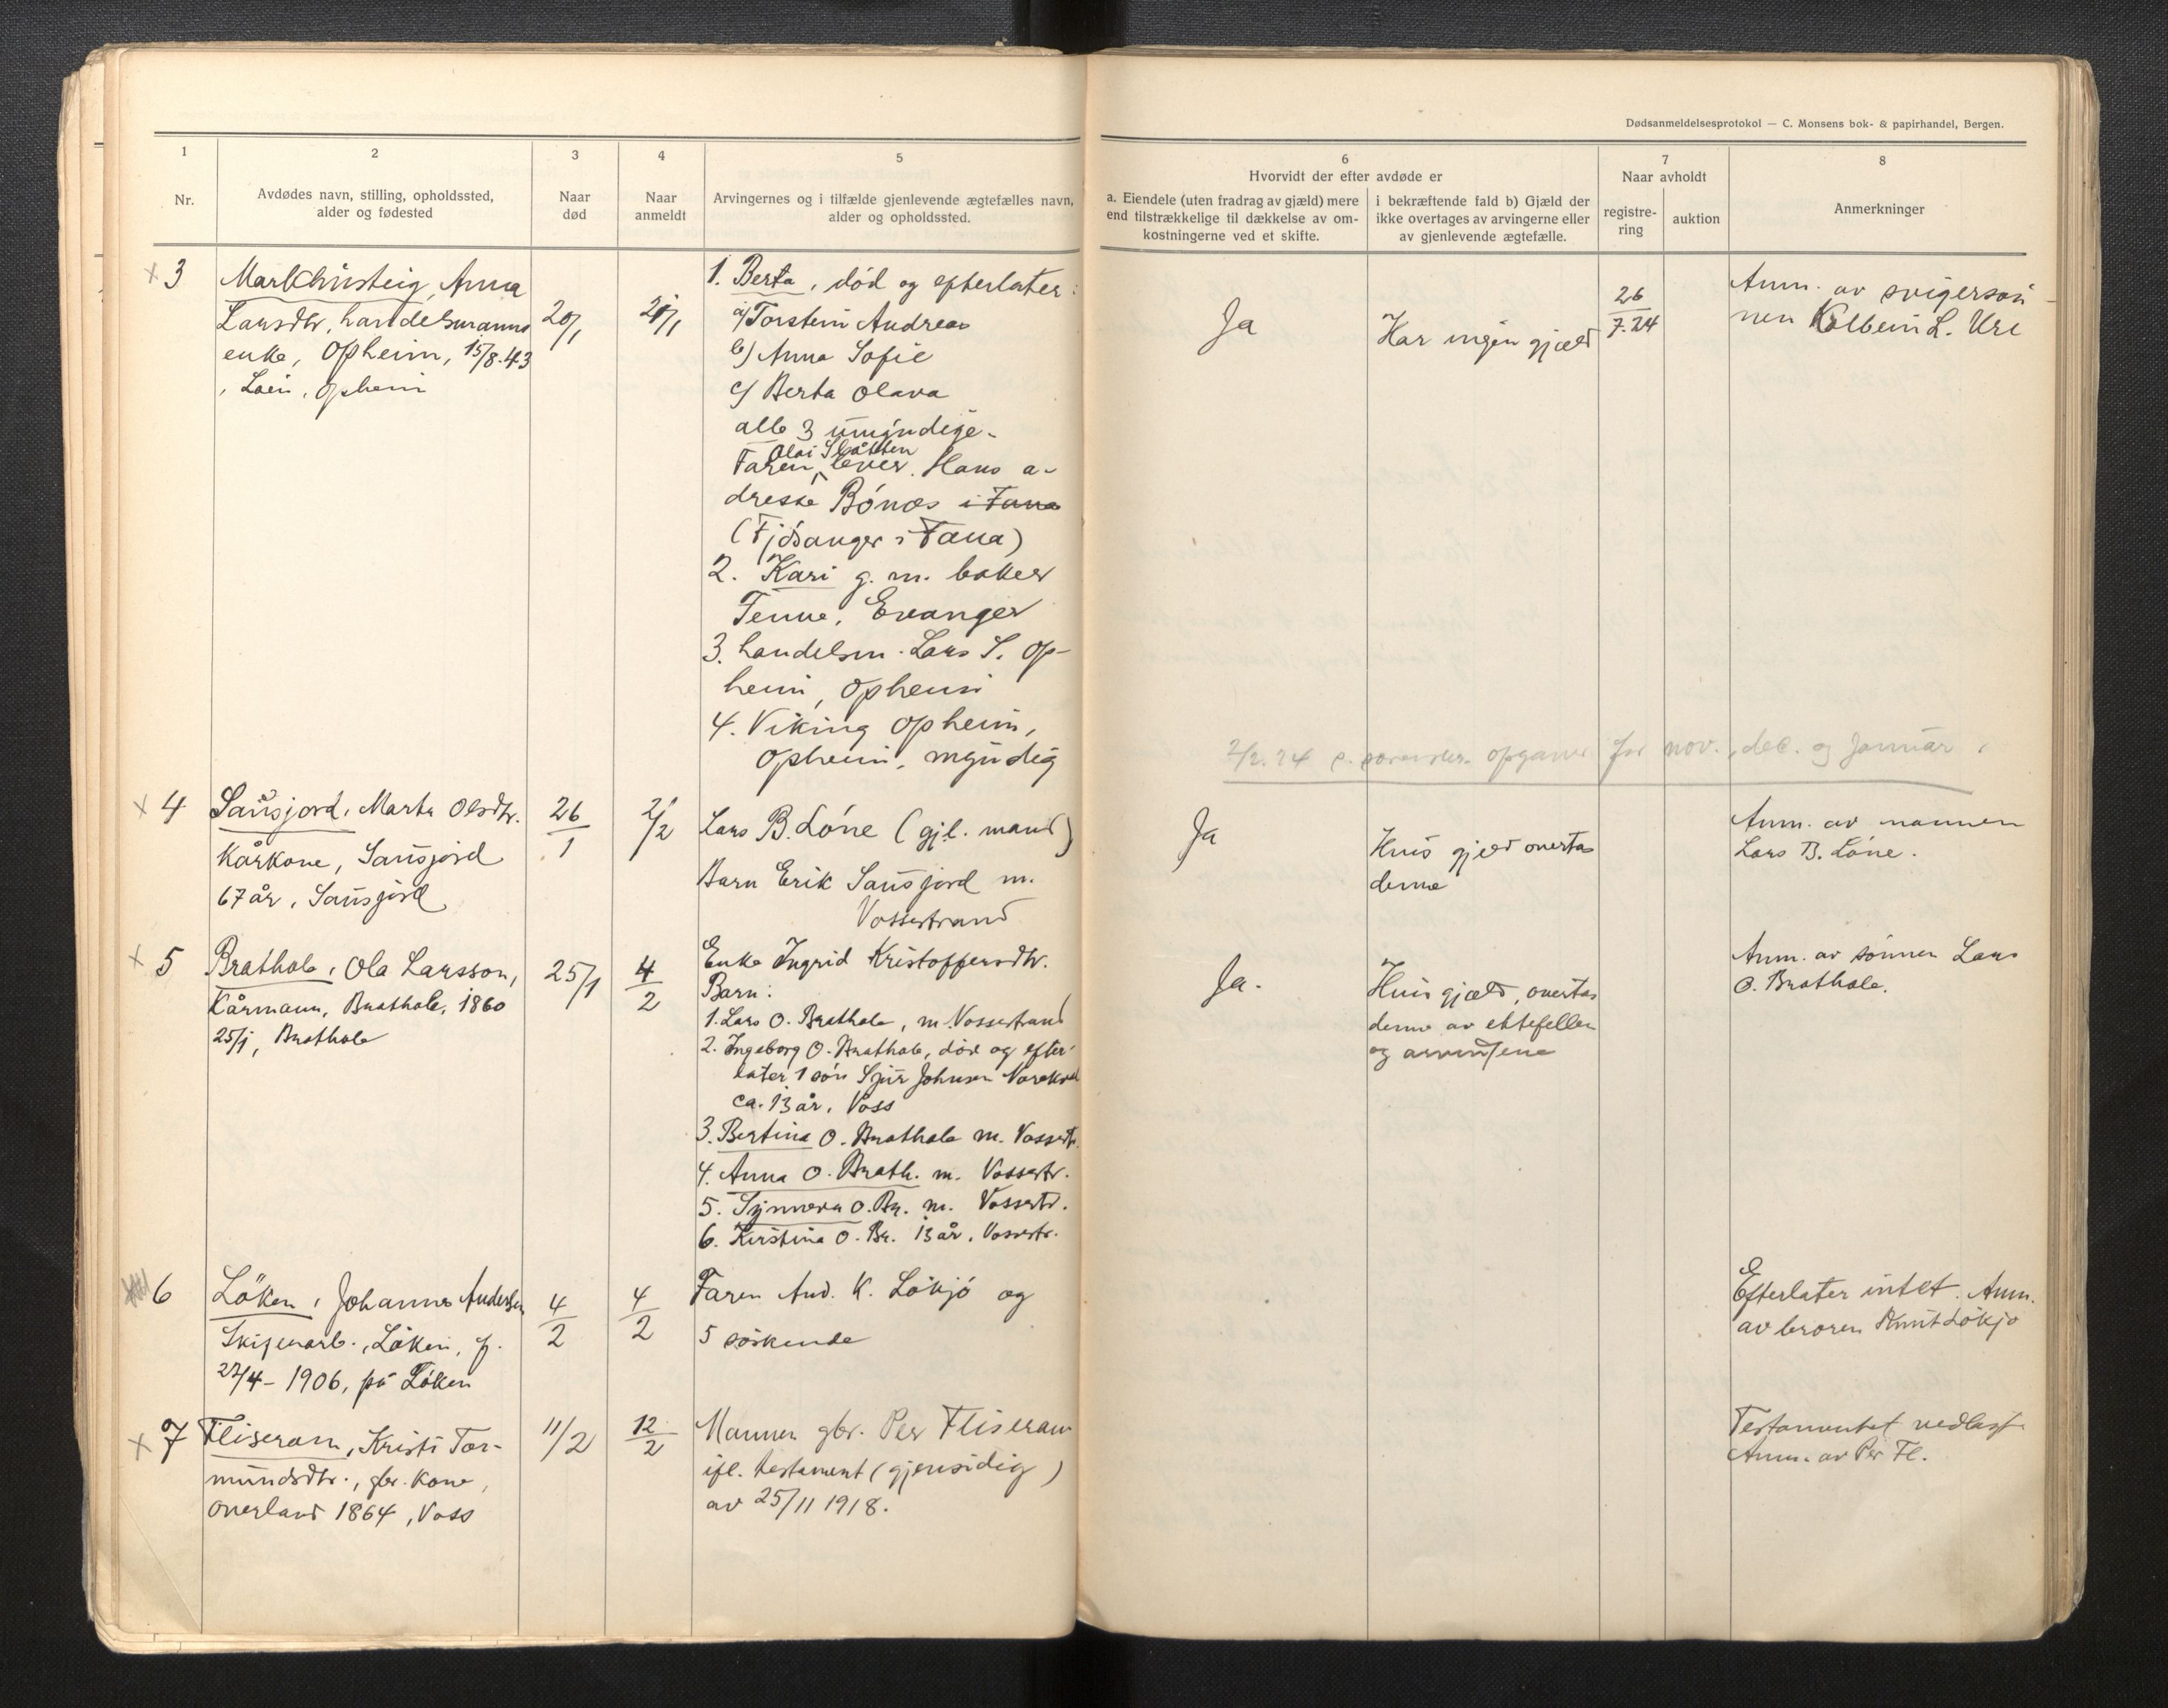 Dødsanmeldelsesprotokol — C. Monsens bok- & papirhandel, Bergen.
1
Nr.
2
Avdødes navn, stilling, opholdssted,
alder og fødested
3
Naar
død
4
Naar
anmeldt
5
Arvingernes og i tilfælde gjenlevende ægtefælles navn,
alder og opholdssted.
6
Hvorvidt der efter avdøde er
a. Eiendele (uten fradrag av gjæld) mere
end tilstrækkelige til dækkelse av om-
kostningerne ved et skifte.
i bekræftende fald b) Gjæld der
ikke overtages av arvingerne eller
av gjenlevende ægtefælle.
7
Naar avholdt
registre-
ring
auktion
8
Anmerkninger
x 3
Anna
Larsdtr, handelsmanns
enke, Opheim, 15/8.43
, Loen, Opheim
20/1
21/1
1. Berta, død og efterlater:
a) Torstein Andreas
b) Anna Sofie
c) Berta Olava
alle 3 umyndige.
Olai Slåtten
Faren lever. Hans a-
dresse Bönes i Fana
(Fjösanger i Fana)
2. Kari g. m. baker
Tenne, Evanger
3. handelsm. Lars S. Op-
heim, Opheim
4. Viking Opheim,
Opheim, myndig
Ja
Har ingen gjæld
26
7.24
Anm. av svigersön-
nen Kolbein L. Ure
2/2.24 opgave for nov., dec. og januar
x 4
Saüsjord, Marta Olsdtr.
Kårkone, Saüsjord
67 år, Saüsjord
26
1
2/2
Lars B. Löne (gjl. mand)
Barn Erik Saüsjord m.
Vossestrand
Ja
Hvis gjæld overtas
denne
Anm. av mannen
Lars B. Löne.
x 5
Brathole, Ola Larsson,
Kårmann, Brathole, 1860
25/1, Brathole
25/1
4
2
Enke Ingrid Kristoffersdtr.
Barn:
1. Lars O. Brathole, m. Vossestrand
2. Ingeborg O. Brathole, död og efter-
later 1 sön Sjur Johnsen
ca. 13 år, Voss
3. Bertina O. Brathole m. Vossestr.
4. Anna O. Brath. m. Vossestr.
5. Synneva O. Br. m. Vossestr.
6. Kirstina O. Br. 13 år, Vossestr.
Ja.
Hvis gjæld, overtas
denne av ektefellen
og arvingene
Anm. av sönnen Lars
O. Brathole.
6
Löken, Johannes Andersen
Skipenarb., Löken, f.
27/4-1906, på Löken
4
2
4
2
Faren And. K. Lökjö og
5 söskende
Efterlater intet. Anm.
av broren Knut Lökjö
x 7
Fliseram, Kristi Tor-
mundsdtr., gbr. kone,
Overland 1864, Voss
11/2
12
2
Mannen gbr. Per Fliseram
ifl. testament (gjensidig)
av 25/11 1918.
Testamentet vedlagt
Anm. av Per Fl.